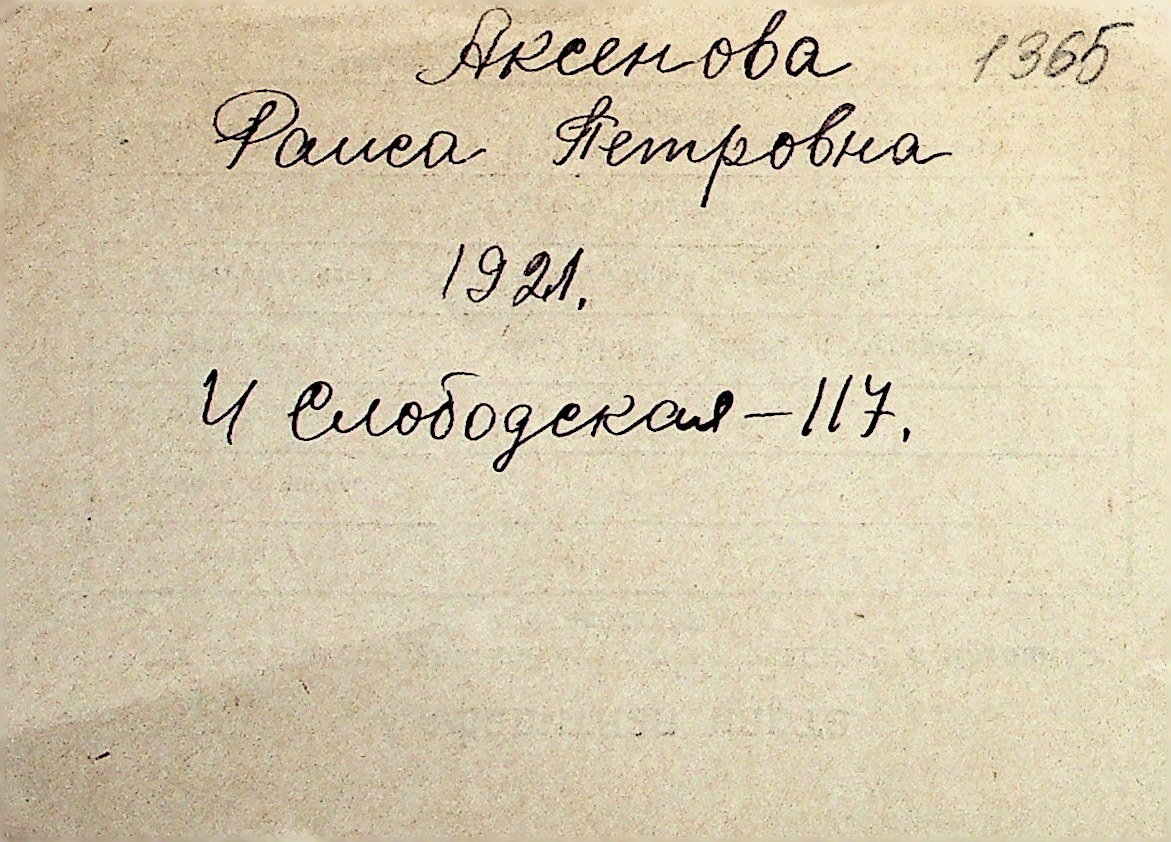 Аксенова 1365
Раиса Петровна
1921.
Ч Слободская - 117.